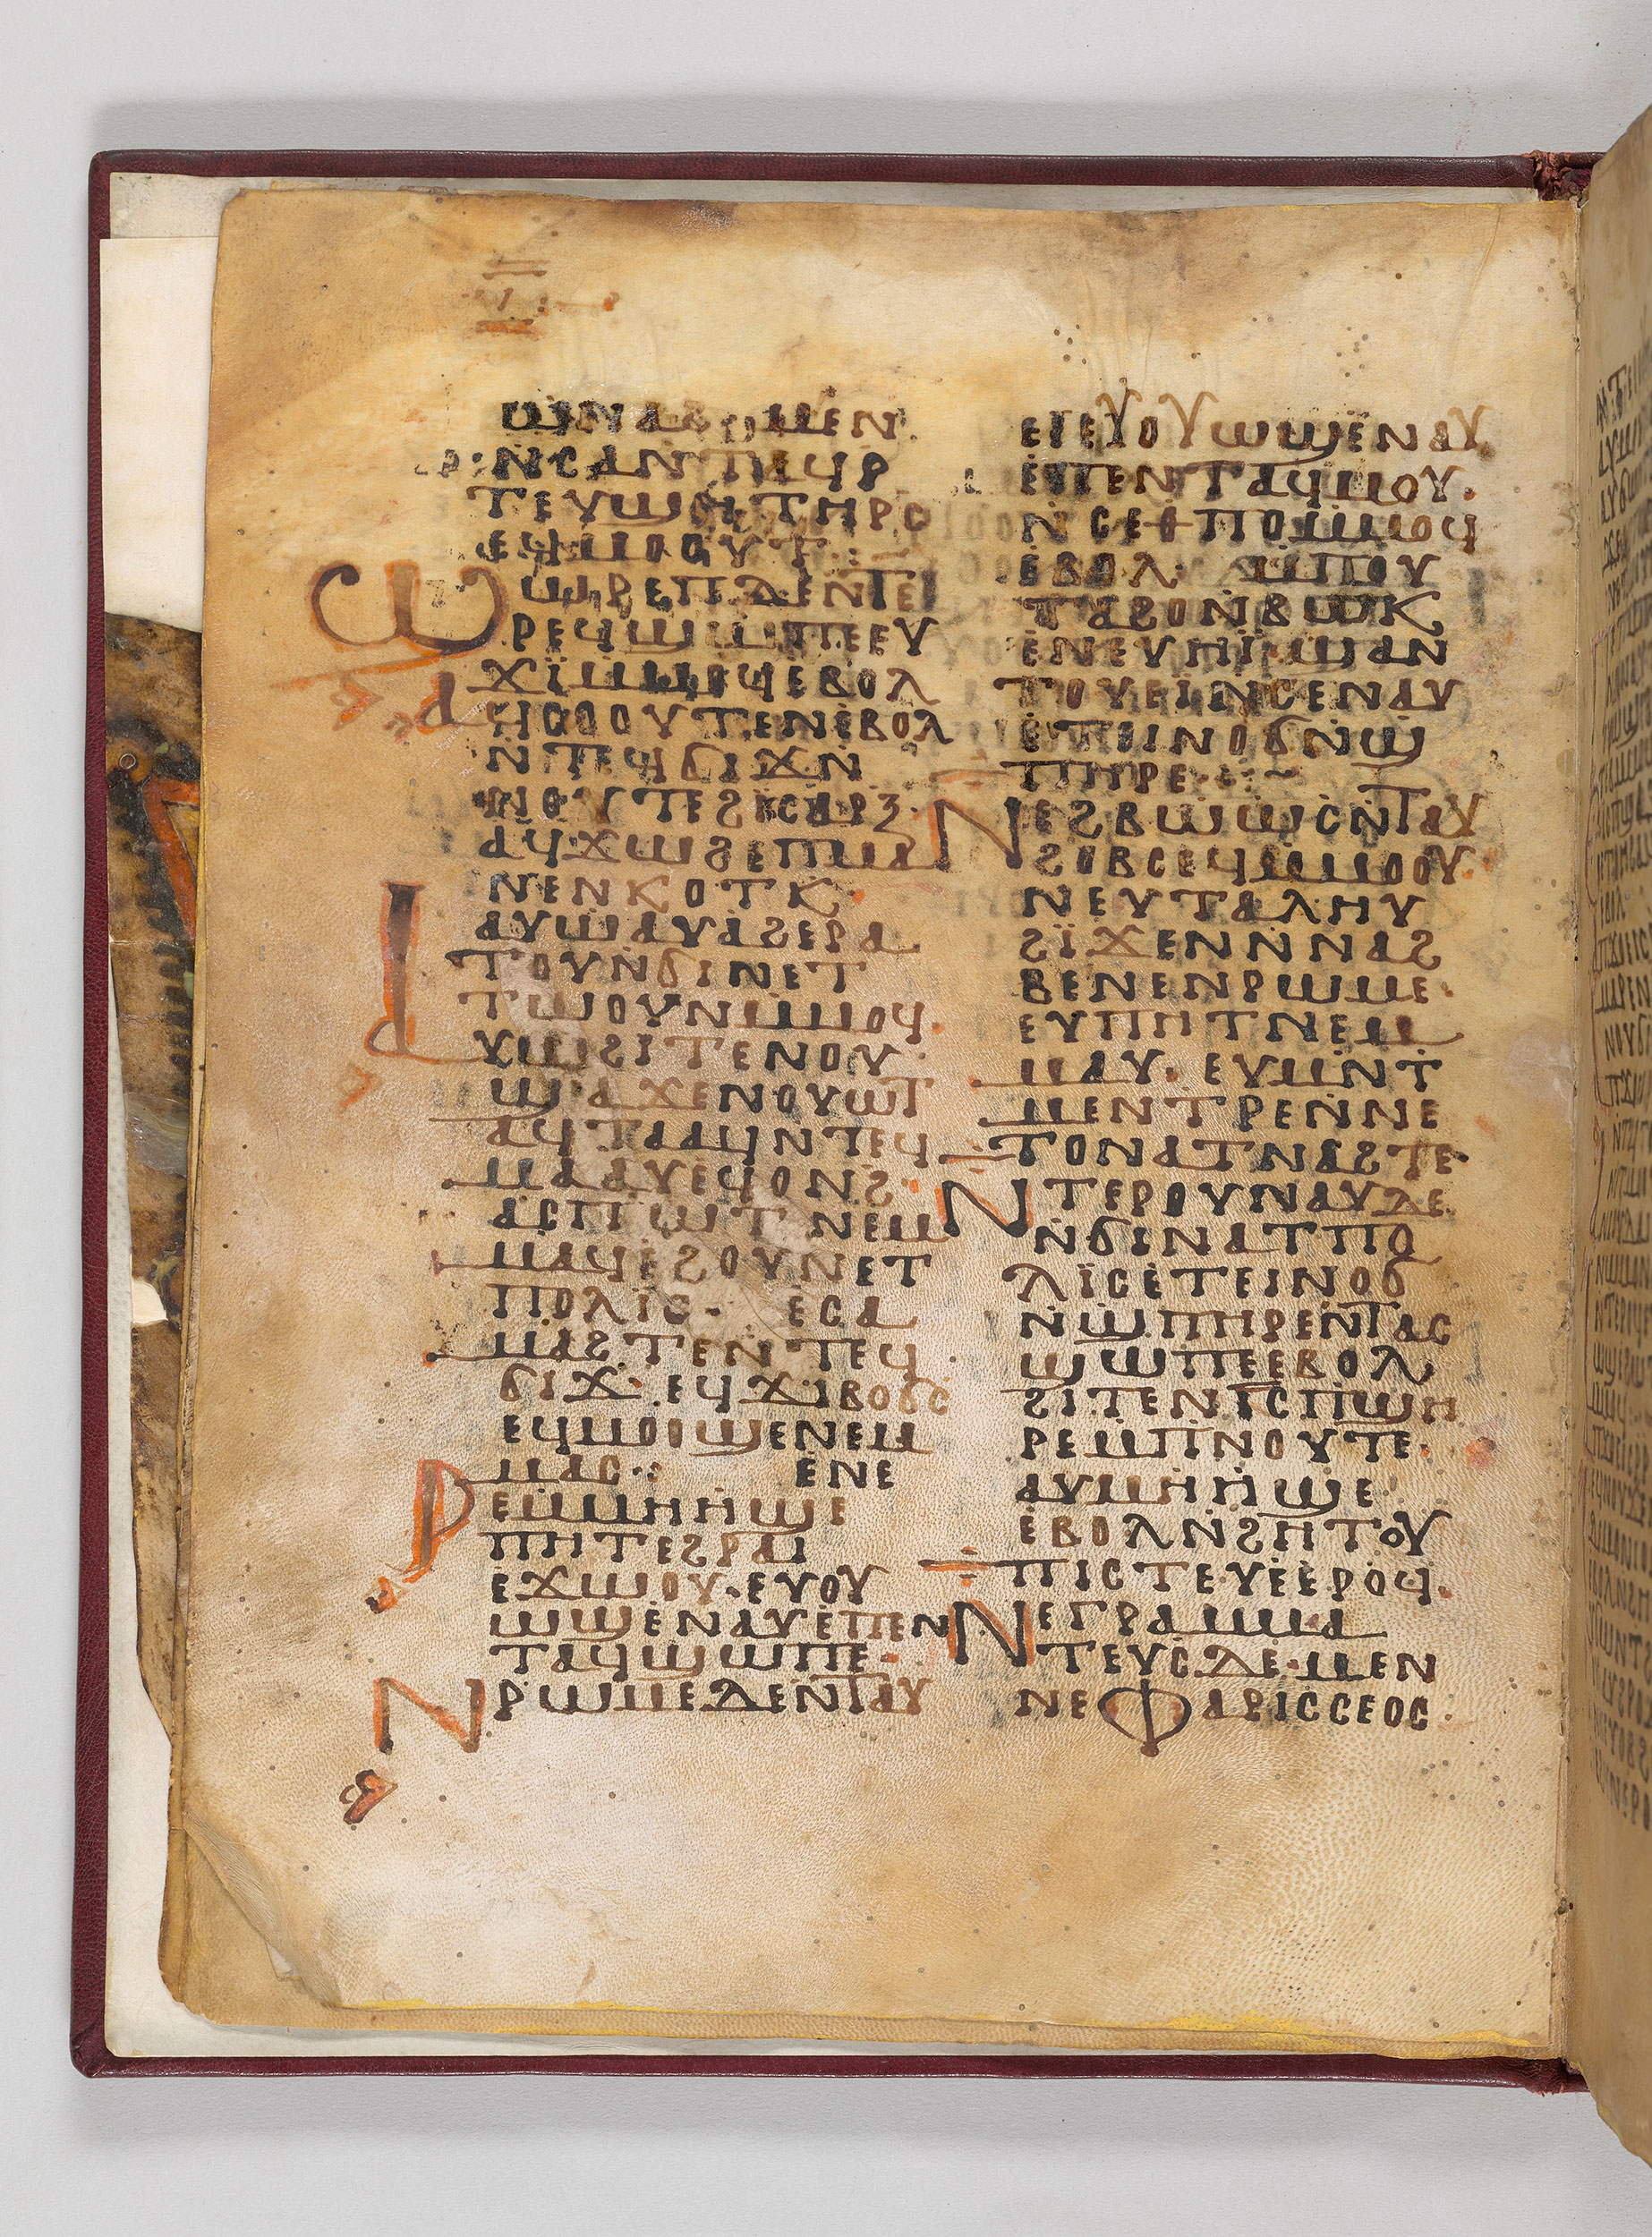 ⲛⲥⲁⲛⲧⲉϥⲣ
ⲧⲉⲩϣⲏⲧⲏⲣⲥ
ⲉϥⲙⲟⲟⲩⲧ
ϣⲏⲣⲉⲡⲇⲉⲛⲧⲉ
ⲣⲉϥϣⲱⲡⲉⲉⲩ
ϫⲓⲙⲙⲟϥⲉⲃⲟⲗ
ⲁϥⲥⲟⲟⲩⲧⲉⲛⲉⲃⲟⲗ
ⲛⲧⲉϥϭⲓϫⲛ
ⲛⲟⲩⲧⲉϩⲓⲥⲁⲣⲝ
ⲁϥϫⲱϩⲉⲡⲙⲁ
ⲛⲉⲛⲕⲟⲧⲕ
ⲁⲩⲱⲁⲩⲁϩⲉⲣⲁ
ⲧⲟⲩⲛϭⲓⲛⲉⲧ
ⲧⲱⲟⲩⲛⲙⲙⲟϥ.
ⲁⲩⲱϩⲓⲧⲉⲛⲟⲩ
ϣⲁϫⲉⲛⲟⲩⲱⲧ
ⲁϥⲧⲁⲁϥⲛⲧⲉϥ
ⲙⲁⲁⲩⲉϥⲟⲛϩ
ⲁⲥⲡⲱⲧ ⲛⲉⲙ
ⲙⲁϥⲉϩⲟⲩⲛⲉⲧ
ⲡⲟⲗⲓⲥ· ⲉⲥⲁ
ⲙⲁϩⲧⲉⲛⲧⲉϥ
ϭⲓϫ·ⲉϥϫⲓⲃⲟϭⲥ
ⲉϥⲙⲟⲟϣⲉⲛⲉⲙ
ⲙⲁⲥ: ⲉⲛⲉ
ⲣⲉⲙⲙⲏⲏϣⲉ
ⲡⲏⲧⲉϩⲣⲁⲓ
ⲉϫⲱⲟⲩ·ⲉⲩⲟⲩ
ⲱϣⲉⲛⲁⲩⲉⲡⲉⲛ
ⲧⲁϥϣⲱⲡⲉ·
ⲛⲣⲱⲙⲉⲇⲉⲛⲧⲁⲩ
ⲉⲓⲉⲩⲟⲩⲱϣⲉⲛⲁⲩ
ⲉⲡⲉⲛⲧⲁϥⲙⲟⲩ.
ⲛⲥⲉⲑⲡⲟⲙⲙⲟϥ
ⲉⲃⲟⲗ ⲙⲡⲟⲩ
ⲧⲁϩⲟⲛⲃⲱⲕ
ⲉⲛⲉⲩⲏⲓϣⲁⲛ
ⲧⲟⲩⲉⲓⲛⲥⲉⲛⲁⲩ
ⲉⲧⲉⲓⲛⲟϭⲛϣ
ⲡⲏⲣⲉ·:~
ⲛⲉϩⲃⲱⲱⲥⲛⲧⲁⲩ
ϩⲟⲃⲥⲉϥⲙⲙⲟⲟⲩ·
ⲛⲉⲩⲧⲁⲗⲏⲩ
ϩⲓϫⲉⲛⲛⲛⲁϩ
ⲃⲉⲛⲉⲛⲣⲱⲙⲉ·
ⲉⲩⲡⲏⲧⲛⲉⲙ
ⲙⲁⲩ· ⲉⲩⲙⲛⲧ
ⲙⲉⲛⲧⲣⲉⲛⲛⲉ
ⲧⲟⲛⲁⲧⲛⲁϩⲧⲉ
ⲛⲧⲉⲣⲟⲩⲛⲁⲩⲇⲉ
ⲛϭⲓⲛⲁⲧⲡⲟ
ⲗⲓⲥⲉⲧⲉⲓⲛⲟϭ
ⲛϣⲡⲏⲣⲉⲛⲧⲁⲥ
ϣⲱⲡⲉⲉⲃⲟⲗ
ϩⲓⲧⲉⲛⲓⲥⲡϣⲏ
ⲣⲉⲙⲡⲛⲟⲩⲧⲉ·
ⲁⲩⲙⲏⲏϣⲉ
ⲉⲃⲟⲗⲛϩⲏⲧⲟⲩ
ⲡⲓⲥⲧⲉⲩⲉⲉⲣⲟϥ.
ⲛⲉⲅⲣⲁⲙⲙⲁ
ⲧⲉⲩⲥⲇⲉ·ⲙⲉⲛ
ⲛⲉⲫⲁⲣⲓⲥⲥⲉⲟⲥ